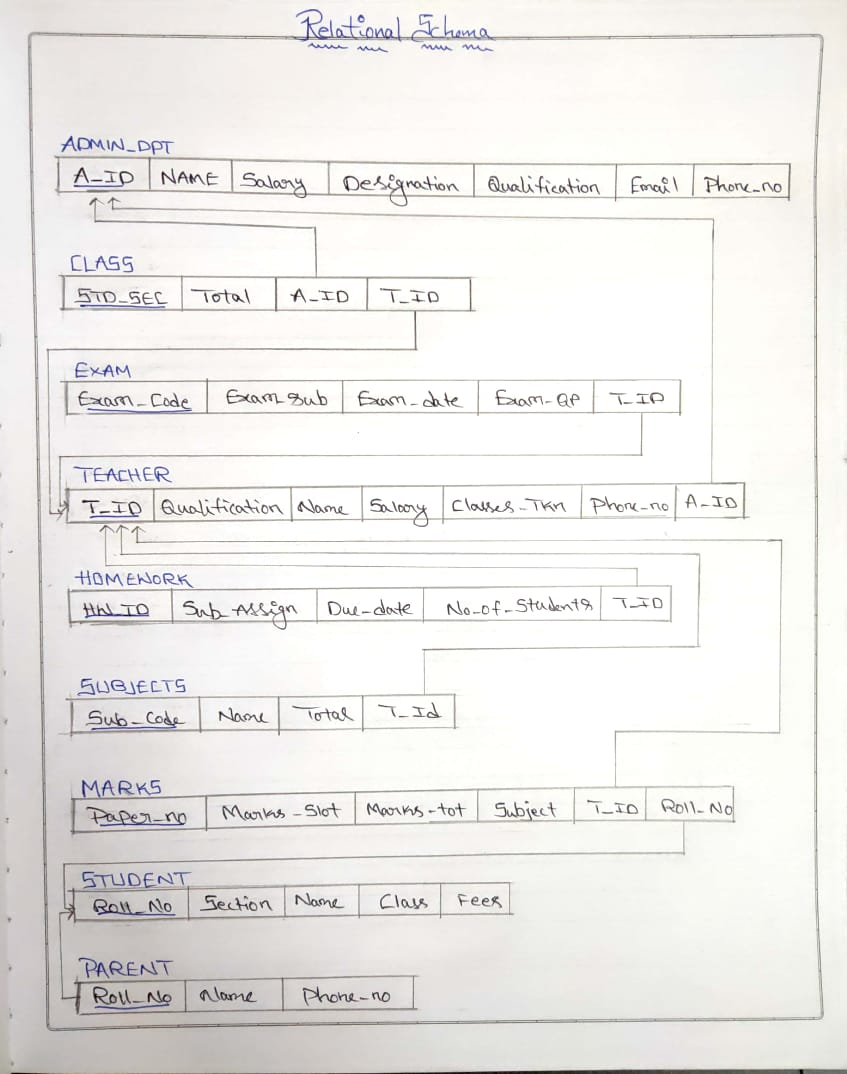 Relational Schema
ADMIN_DPT
A_ID NAME Salary Designation Qualification Email Phone_no
CLASS
STD_SEC Total A_ID T_ID
EXAM
Exam_Code Exam_Sub Exam_date Exam_QP T_ID
TEACHER
T_ID Qualification Name Salary Classes_Tkn Phone_no A_ID
HOMEWORK
HW_ID Sub_Assign Due_date No_of_Students T_ID
SUBJECTS
Sub_Code Name Total T_Id
MARKS
Paper_no Marks_Slot Marks_tot Subject T_ID Roll_No
STUDENT
Roll_No Section Name Class Fees
PARENT
Roll_No Name Phone_no